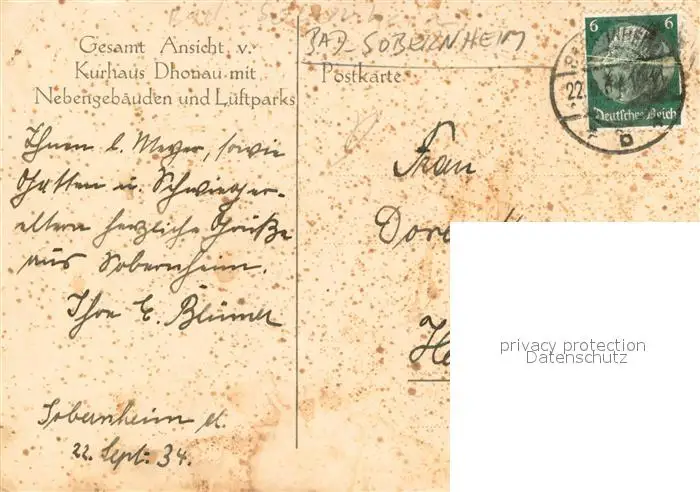 BAD-SOBERNHEIM
Gesamt Ansicht v.
Kurhaus Dhonau mit
Nebengebäuden und Luftparks
Postkarte
6 6
Deutsches Reich
22.
b
Ihnen l. Meyer, sowie
Gatten u. Schwieger-
eltern herzliche Grüße
aus Sobernheim.
Ihre E. Blümel
Sobernheim d.
22. Sept. 34.
Frau
privacy protection
Datenschutz